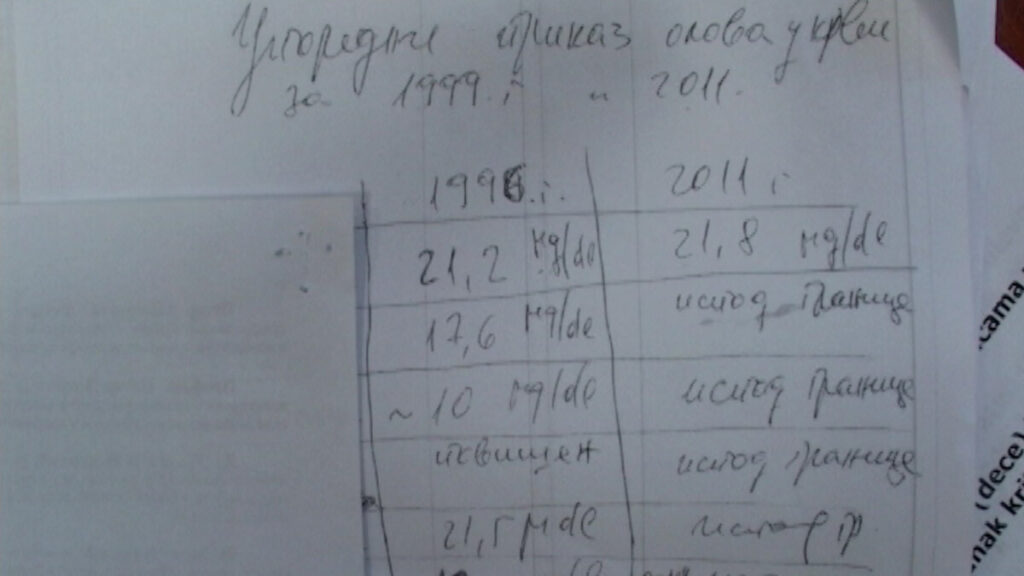 Упоредни приказ олова у крви
за 1999. и 2011.
1996. г. 2011 г
21,2 µg/de 21,8 µg/de
17,6 µg/de испод границе
~ 10 µg/de испод границе
повишен испод границе
21,5 µde испод гр.
(dece)